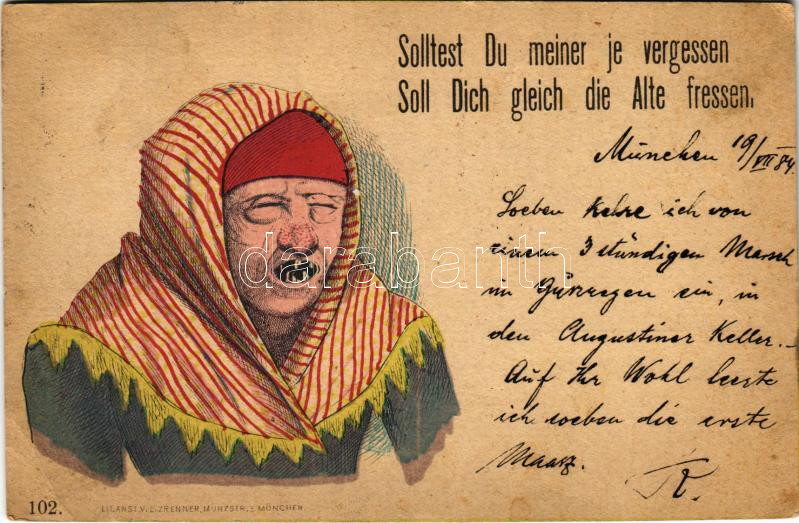 Solltest Du meiner je vergessen
Soll Dich gleich die Alte fressen.
München 19/VII 84.
Soeben kehre ich von
einem 3 stündigen Marsch
im ein, in
den Augustiner Keller.-
Auf Ihr Wohl leerte
ich soeben die erste
Maass.
darabanth
102.
LIT. ANST. V. L. ZRENNER, MÜNZSTR. MÜNCHEN